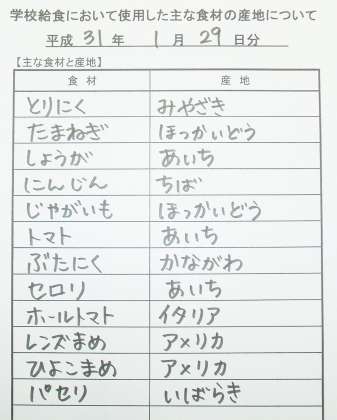 学校給食において使用した主な食材の産地について
平成 31 年 1 月 29 日分
【主な食材と産地】
食材 産地
とりにく みやざき
たまねぎ ほっかいどう
しょうが あいち
にんじん ちば
じゃがいも ほっかいどう
トマト あいち
ぶたにく かながわ
セロリ あいち
ホールトマト イタリア
レンズまめ アメリカ
ひよこまめ アメリカ
パセリ いばらき